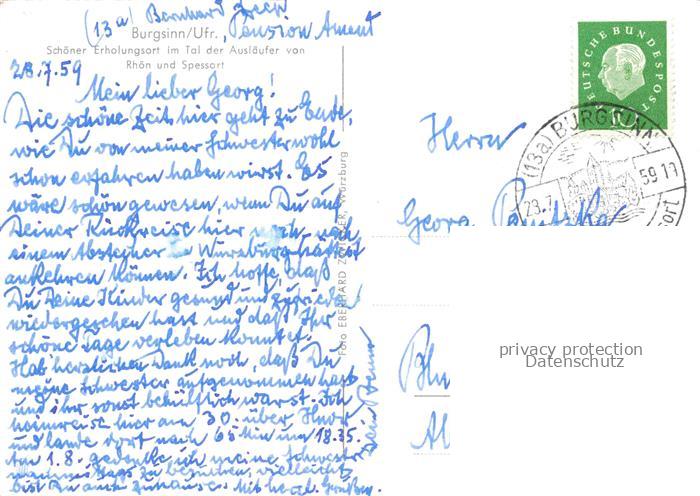 (13a) Bernhard
Burgsinn/Ufr., Pension Ament
Schöner Erholungsort im Tal der Ausläufer von
Rhön und Spessart
28.7.59
Mein lieber Georg!
Die schöne Zeit hier geht zu Ende,
wie Du von meiner Schwester wohl
schon erfahren haben wirst. Es
wäre schön gewesen, wenn Du auf
Deiner Rückreise hier noch nach
einem Abstecher Würzburg hättest
einkehren können. Ich hoffe, daß
Du Deine Kinder gesund und zufrieden
wiedergesehen hast und daß Ihr
schöne Tage verleben konntet.
Hab herzlichen Dank noch, daß Du
meine Schwester aufgenommen hast
und ihr sonst behilflich warst. Ich
heimreise hier am 30. über Hnvr
und lande dort nach 65 Min um 18.35.
Am 1.8. gedenke ich meine Schwester
zu besuchen, vielleicht
bist Du auch zuhause. Mit herzl. Grüßen.
Dein
Foto EBERHARD ZWICKER, Würzburg
DEUTSCHE BUNDESPOST
10
(13a) BURGSINN
28.7.59
Herrn
Georg
privacy protection
Datenschutz